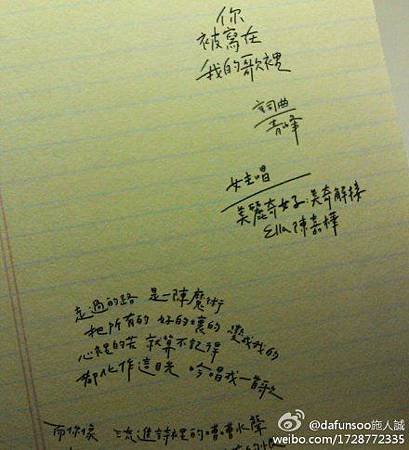 你
被寫在
我的歌裡
詞曲
青峰
女主唱
美麗奇女子:吳奇解接
Ella 陳嘉樺
走過的路 是一陣魔術
把所有的 好的壞的 變成我的
心裡的苦 就算不記得
都化作這目光 吟唱成一首歌
而你像 流進詩裡的嘈嘈水聲
@dafunsoo施人誠
weibo.com/1728772335